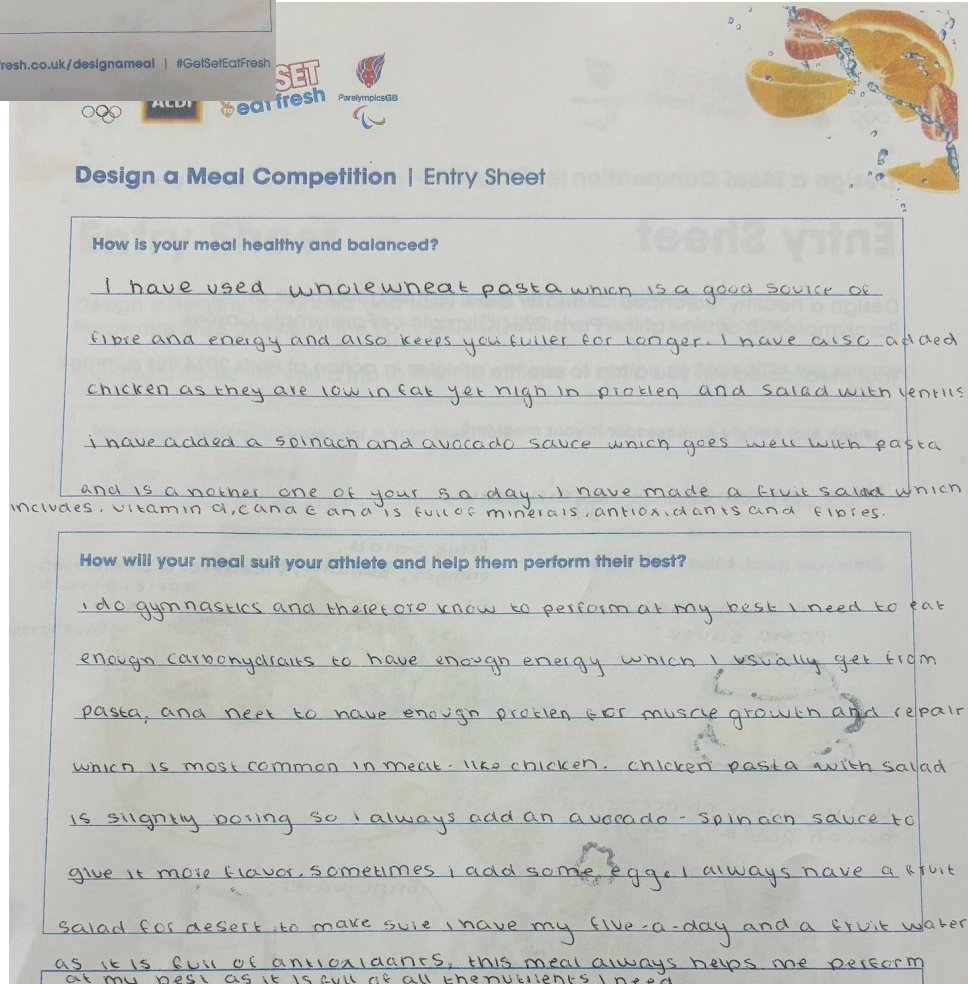 resh.co.uk/designameal | #GetSetEatFresh
ALDI
SET
eat fresh
ParalympicsGB
Design a Meal Competition | Entry Sheet
How is your meal healthy and balanced?
I have used wholewheat pasta which is a good source of
fibre and energy and also keeps you fuller for longer. I have also added
chicken as they are low in fat yet high in protien and salad with lentils
i have added a spinach and avocado sauce which goes well with pasta
and is another one of your 5 a day. I have made a fruit salad which
includes. vitamin a, c and E and is full of minerals, antioxidants and fibres.
How will your meal suit your athlete and help them perform their best?
i do gymnastics and therefore know to perform at my best I need to eat
enough carbohydrates to have enough energy which I usually get from
pasta, and neet to have enough protien for muscle growth and repair
which is most common in meat - like chicken. chicken pasta with salad
is slightly boring so i always add an avocado - spinach sauce to
give it more flavor. sometimes i add some egg. I always have a fruit
salad for desert to make sure i have my five-a-day and a fruit water
as it is full of antioxidants, this meal always helps me perform
at my best as it is full of all the nutrients I need